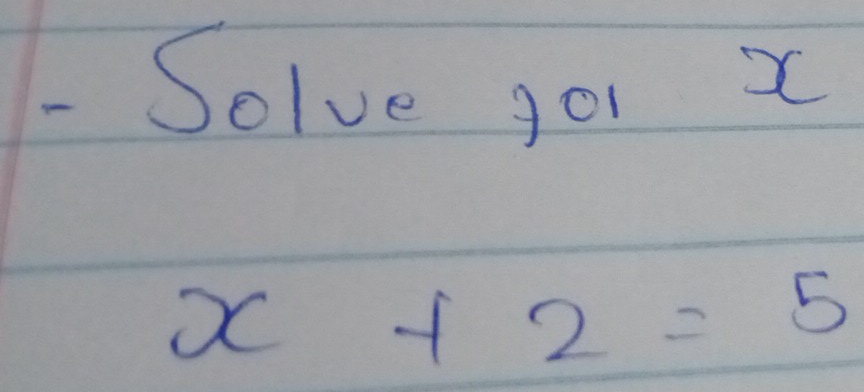 - Solve for x
x + 2 = 5